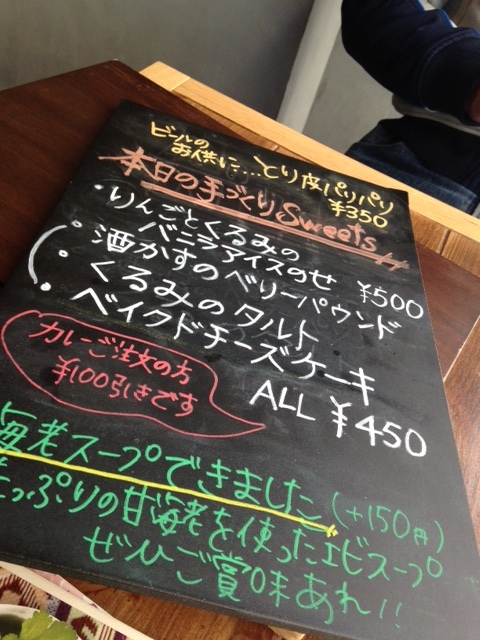 ビールの
お供に…とり皮パリパリ
¥350
本日の手づくりSweets
・りんごとくるみの
バニラアイスのせ ¥500
・酒かすのベリーパウンド
・くるみのタルト
・ベイクドチーズケーキ
ALL ¥450
カレーご注文の方
¥100引きです
海老スープできました(+150円)
たっぷりの甘海老を使ったエビスープ
ぜひご賞味あれ!!